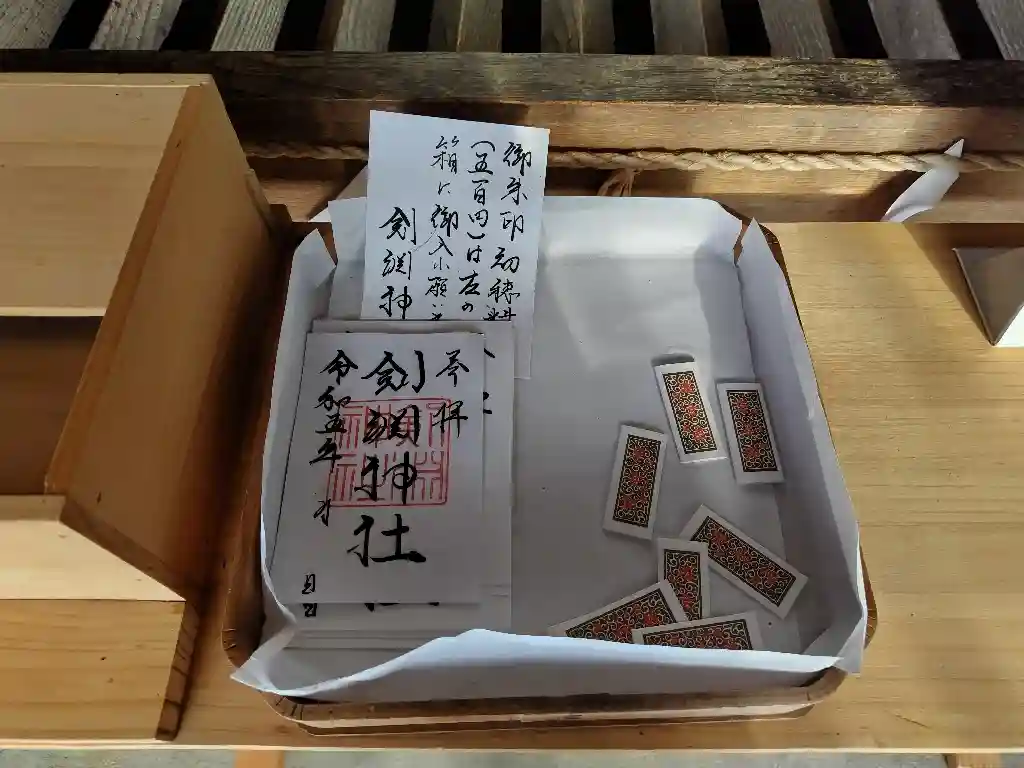 御朱印初穂料
(五百円)は左の
箱に御入れ願い
剣渕神
奉拝
剣渕神社
令和五年
月
日